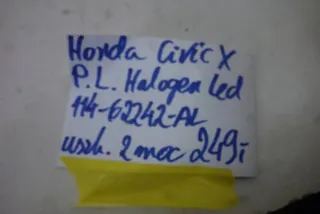 Honda Civic X
P.L. Halogen Led
114-62242-AL
uszk. 2 moc 249,-